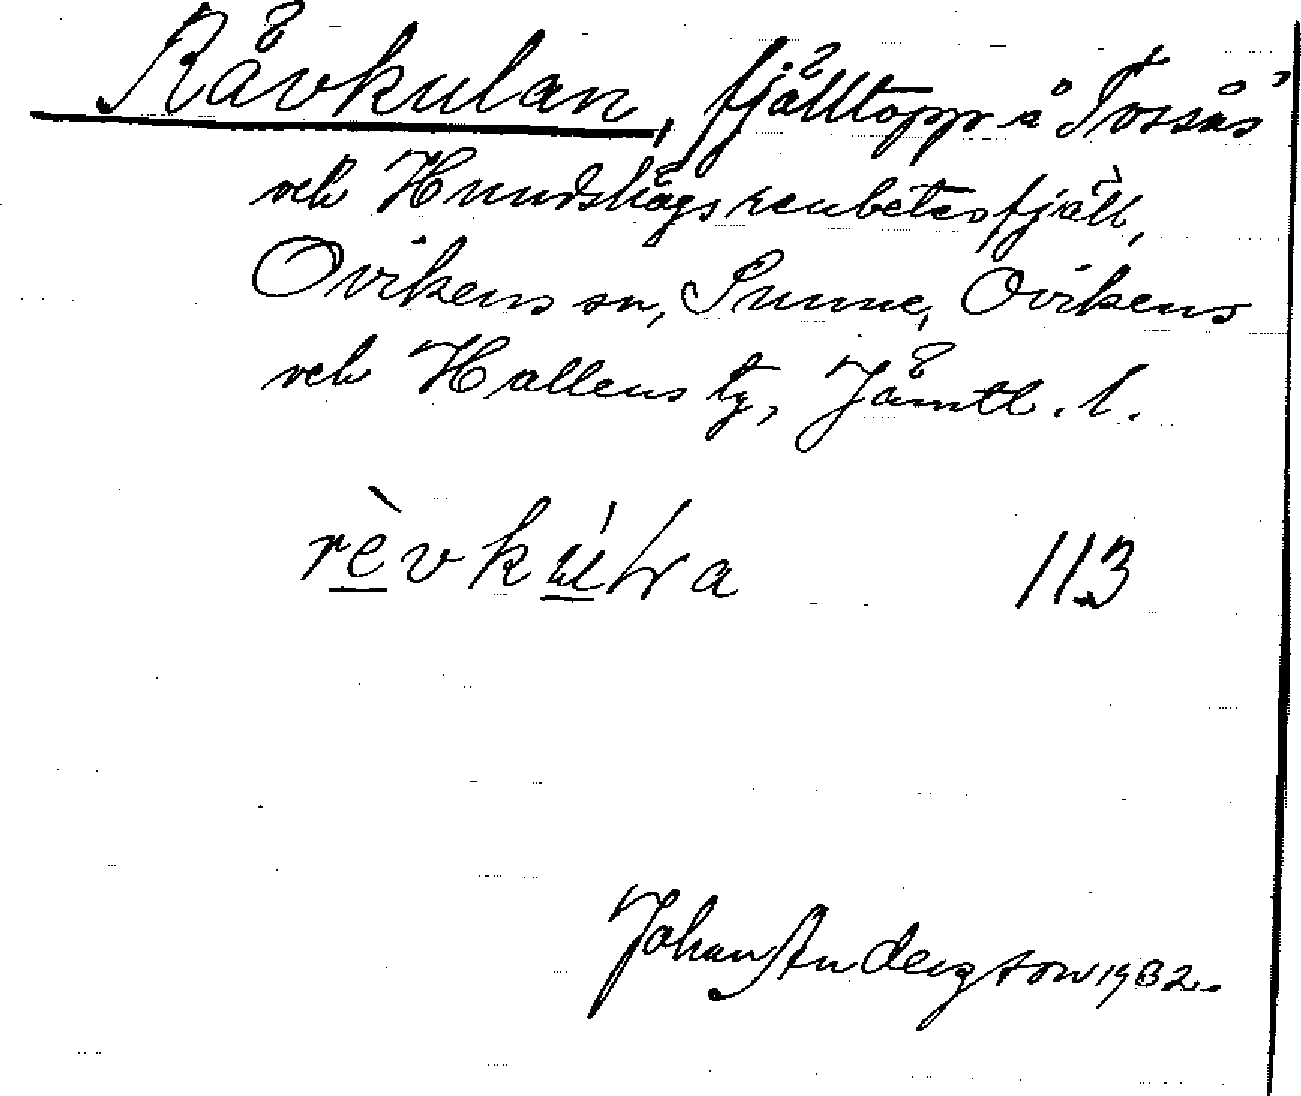 Rävkulan, fjälltopp å Tossås
och Hundshögs renbetesfjäll,
Ovikens sn, Sunne, Ovikens
och Hallens tg, Jämtl. l.
rèvkúɫa 113
Johan Anderzson 1932.